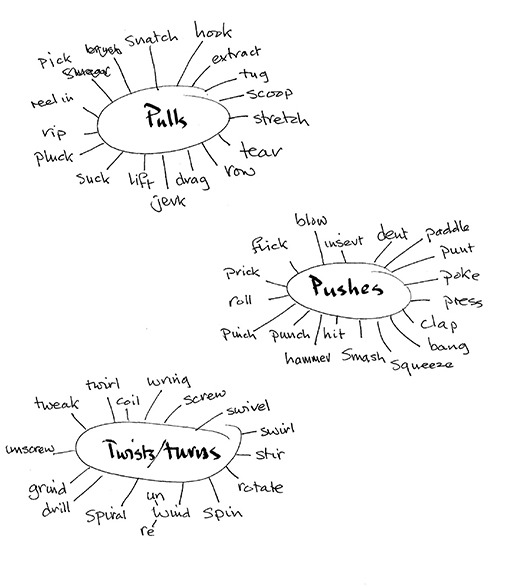 hook
snatch
pick
extract
tug
reel in
scoop
Pulls
stretch
rip
pluck
tear
suck
lift
drag
row
jerk
blow
insert
dent
paddle
flick
punt
prick
poke
Pushes
roll
press
Pinch
punch
hit
clap
bang
hammer
Smash
Squeeze
twirl
coil
wring
screw
tweak
swivel
swirl
unscrew
Twists/turns
stir
grind
drill
rotate
un
Spiral
Wind
Spin
re